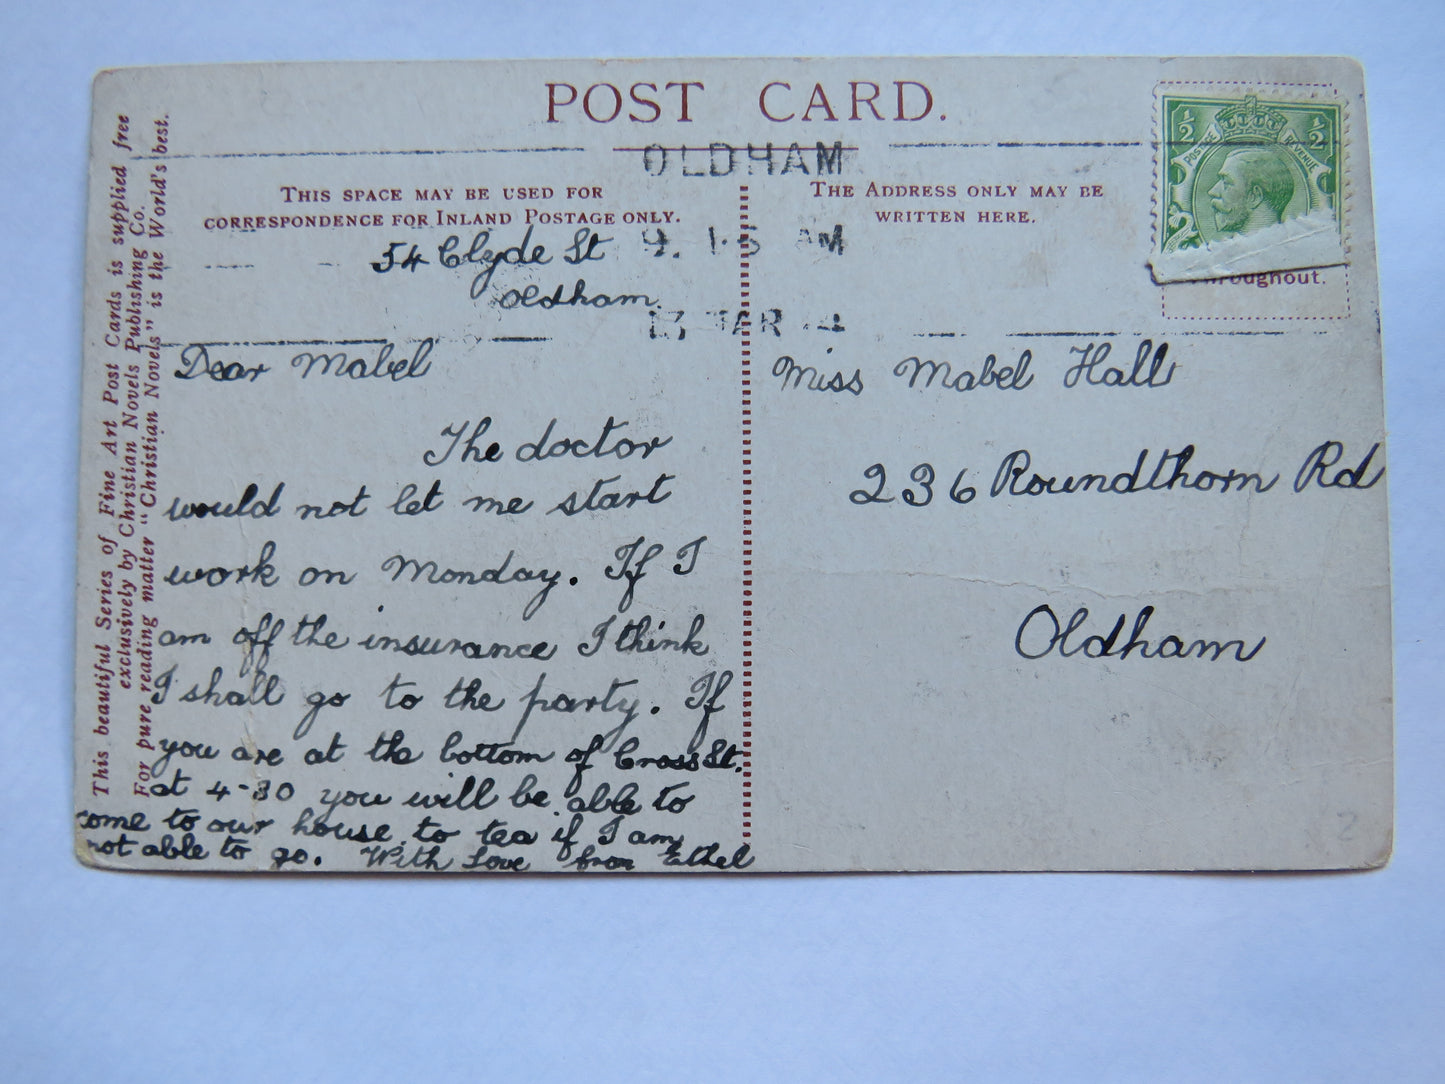 POST CARD.
OLDHAM
THIS SPACE MAY BE USED FOR
CORRESPONDENCE FOR INLAND POSTAGE ONLY.
THE ADDRESS ONLY MAY BE
WRITTEN HERE.
1/2 1/2
POSTAGE REVENUE
Throughout.
AM
This beautiful Series of Fine Art Post Cards is supplied free
exclusively by Christian Novels Publishing Co.
For pure reading matter "Christian Novels" is the World's best.
54 Clyde St
Oldham.
Dear Mabel
The doctor
would not let me start
work on Monday. If I
am off the insurance I think
I shall go to the party. If
you are at the bottom of Cross St.
at 4-30 you will be able to
come to our house to tea if I am
not able to go. With Love from Ethel
Miss Mabel Hall
236 Roundthorn Rd
Oldham
2